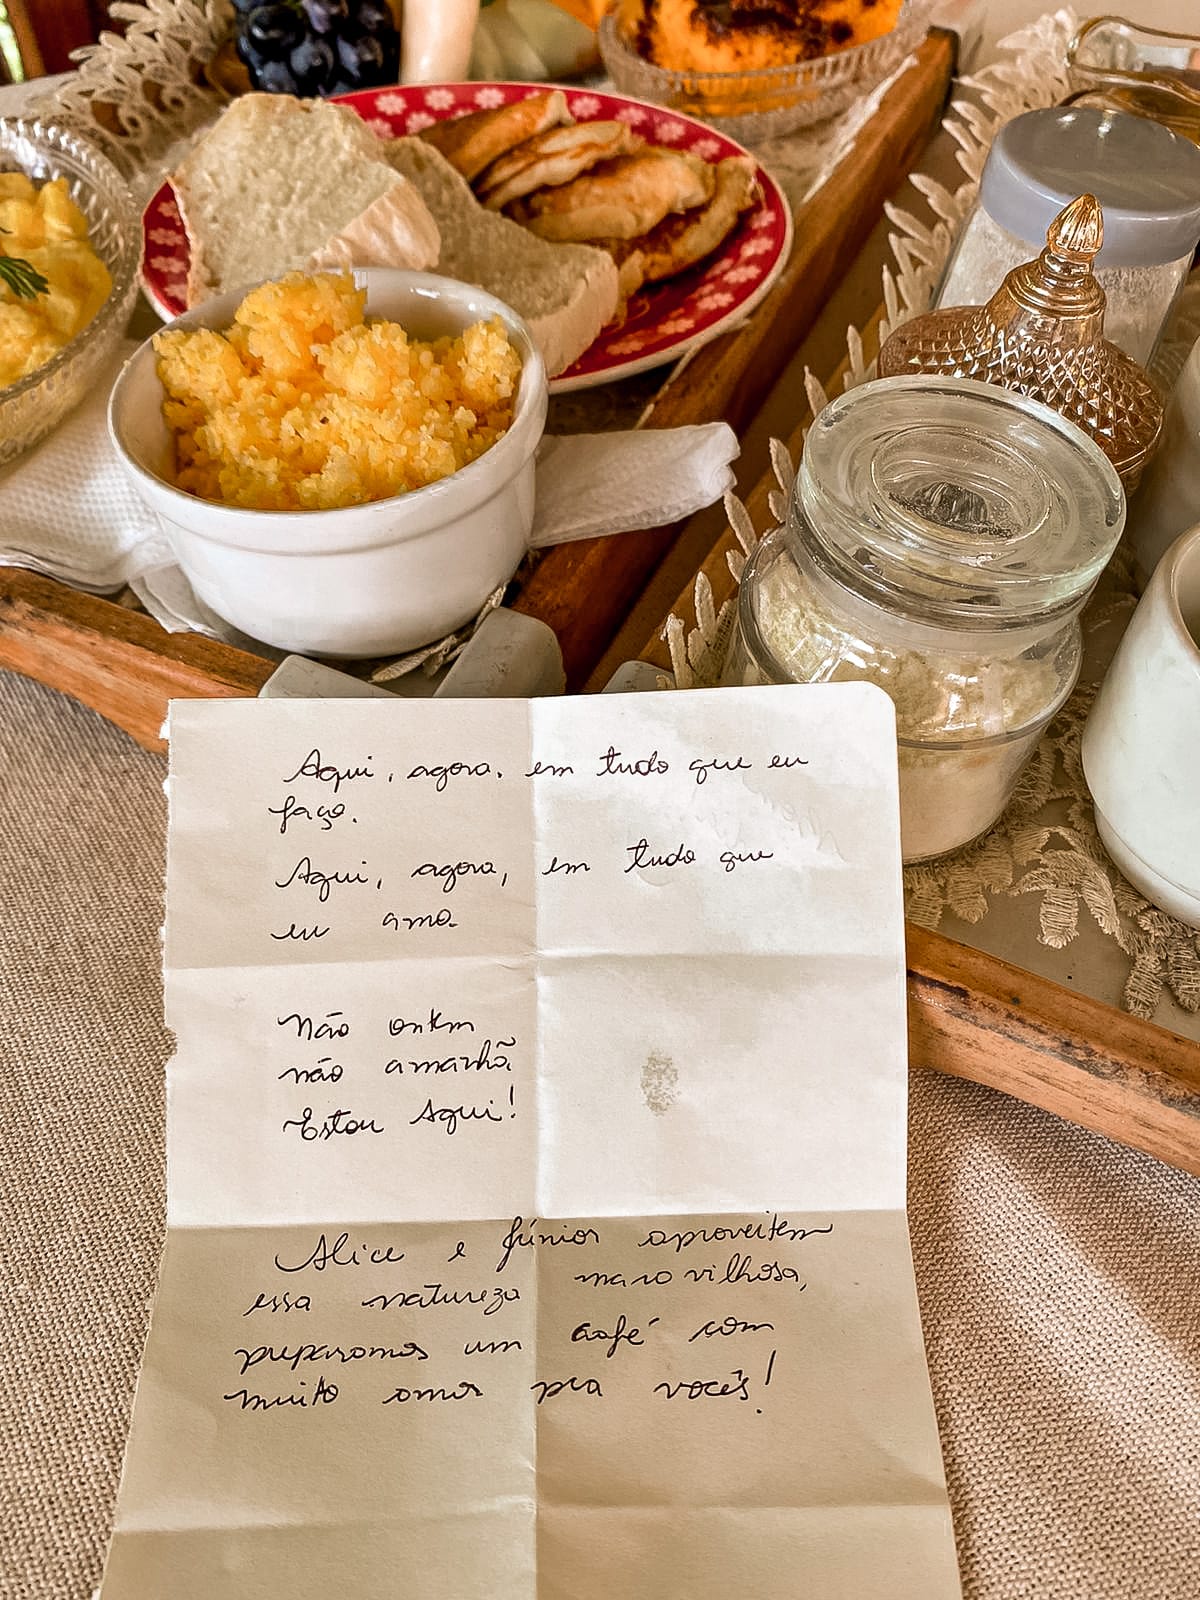 Aqui, agora. em tudo que eu
faço.
Aqui, agora, em tudo que
eu amo.
Não ontem
não amanhã
Estou Aqui!
Alice e Júnior aproveitem
essa natureza maravilhosa,
preparamos um café com
muito amor pra vocês!